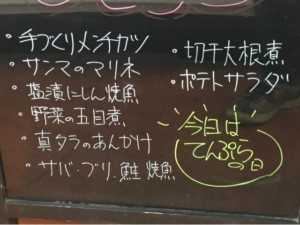 ・手づくりメンチカツ
・サンマのマリネ
・塩漬にしん焼魚
・野菜の五目煮
・真タラのあんかけ
・サバ・ブリ、鮭 焼魚
・切干大根煮
・ポテトサラダ
今日は
てんぷら
の日